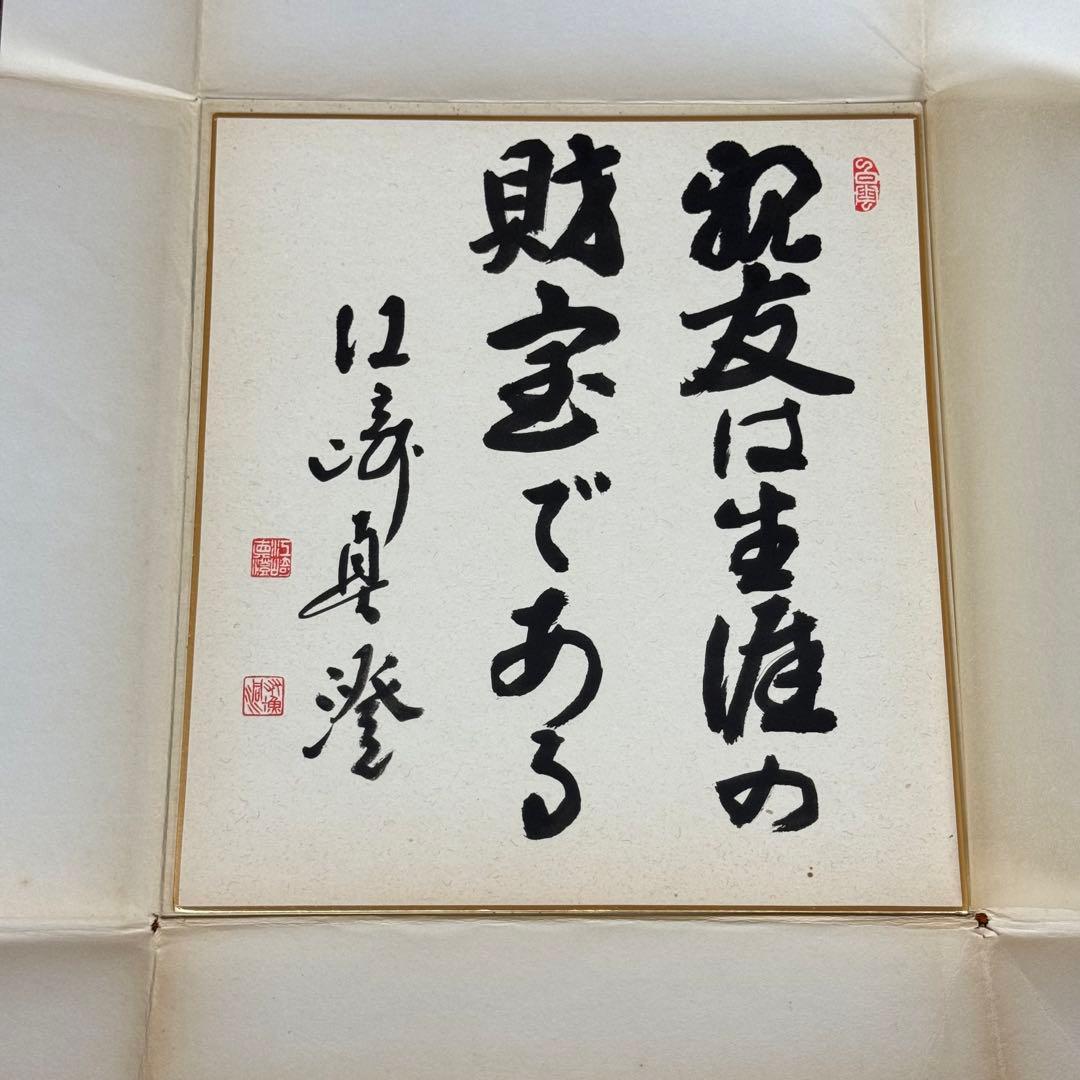 親友は生涯の
財宝である
江崎真澄
江崎真澄